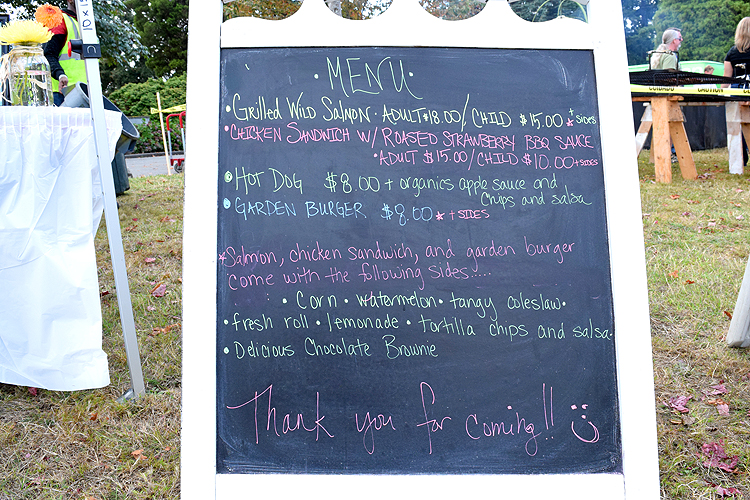 ·MENU·
·Grilled Wild Salmon · ADULT $18.00/CHILD $15.00 * + SIDES
·CHICKEN SANDWICH W/ ROASTED STRAWBERRY BBQ SAUCE
·ADULT $15.00/CHILD $10.00 + SIDES
·HOT DOG $8.00 + organics apple sauce and
Chips and salsa
·GARDEN BURGER $8.00 * + SIDES
*Salmon, chicken sandwich, and garden burger
come with the following sides....
· Corn · watermelon · tangy coleslaw ·
·fresh roll · lemonade · tortilla chips and salsa·
·Delicious Chocolate Brownie
Thank you for coming!! :)
CUIDADO CAUTION